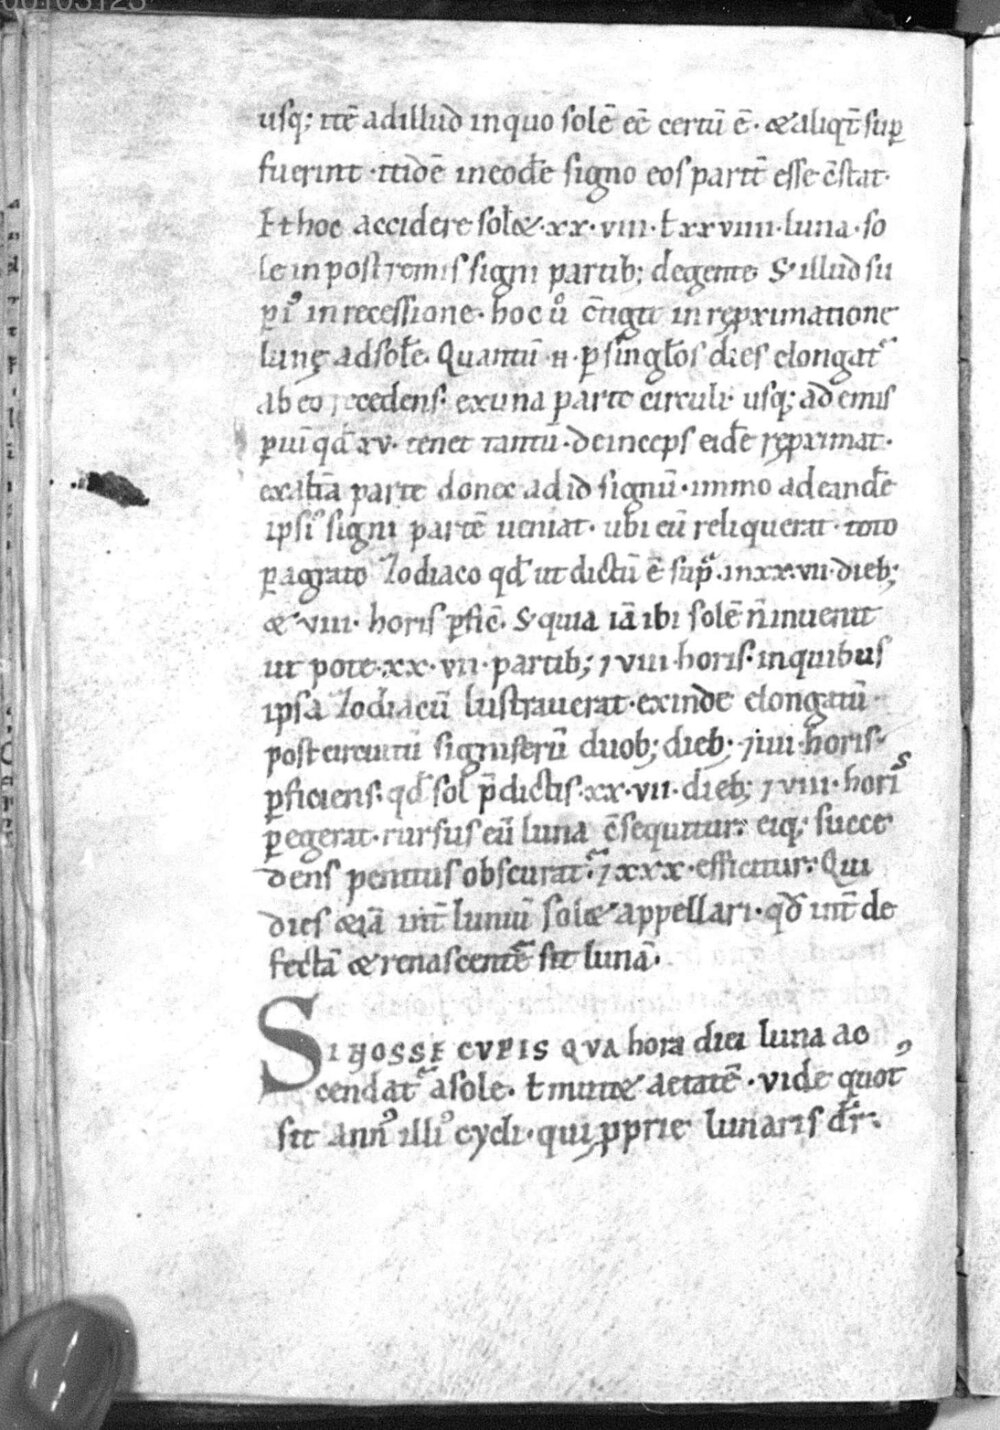 usq; ite᷒ adillud inquo solē eē certū ē· & aliqͥd sup
fuerint ·itidē ineodē signo eos partē esse c̄stat·
Et hoc accidere solet·xx·viii·ł xxviiii·luna·so
le inpostremis signi partib; degente· S; illud su
pi᷒ inrecessione· hoc ů c̄tigit inreꝓximatione
lunę adsolē· Quantū ·n·ꝑ singłos dies elongat᷑
ab eo recedens· exuna parte circuli· usq; ad emis
ꝑiū qđ xv· tenet tantū·deinceps eidē reꝓximat·
exalīa parte donec ad id signū·immo adeandē
ipsi᷒ signi partē ueniat· ubi eū reliquerat· toto
ꝑagrato zodiaco qđ ut dictū ē supͣ·inxx·vii·dieb;
&·viii· horis ꝑfic̄· S; quia iā ibi solē n̄ inuenit
ut pote·xx·vii·partib; ⁊ viii·horis·inquibus
ipsa zodiacū lustrauerat·exinde elongatū·
post circuitū signiferū duob; dieb; ⁊ iiii·horis·
ꝑficiens· qđ sol p̄dictis·xx·vii·dieb; ⁊ viii·horis
ꝑegerat·rursus eū luna c̄sequitur· eiq; succe
dens penitus obscurat᷑·⁊ xxx·efficitur· Qui
dies &iā int̄ luniū sol& appellari·qđ int̄ de
fectā & renascentē sit lunā·
SI NOSSE CVPIS QVA hora diei luna ac
cendat᷑ asole· ł mutet aetatē·vide quot᷒
sit ann᷒ illi᷒ cycli·qui ꝓprie lunaris dr̄·